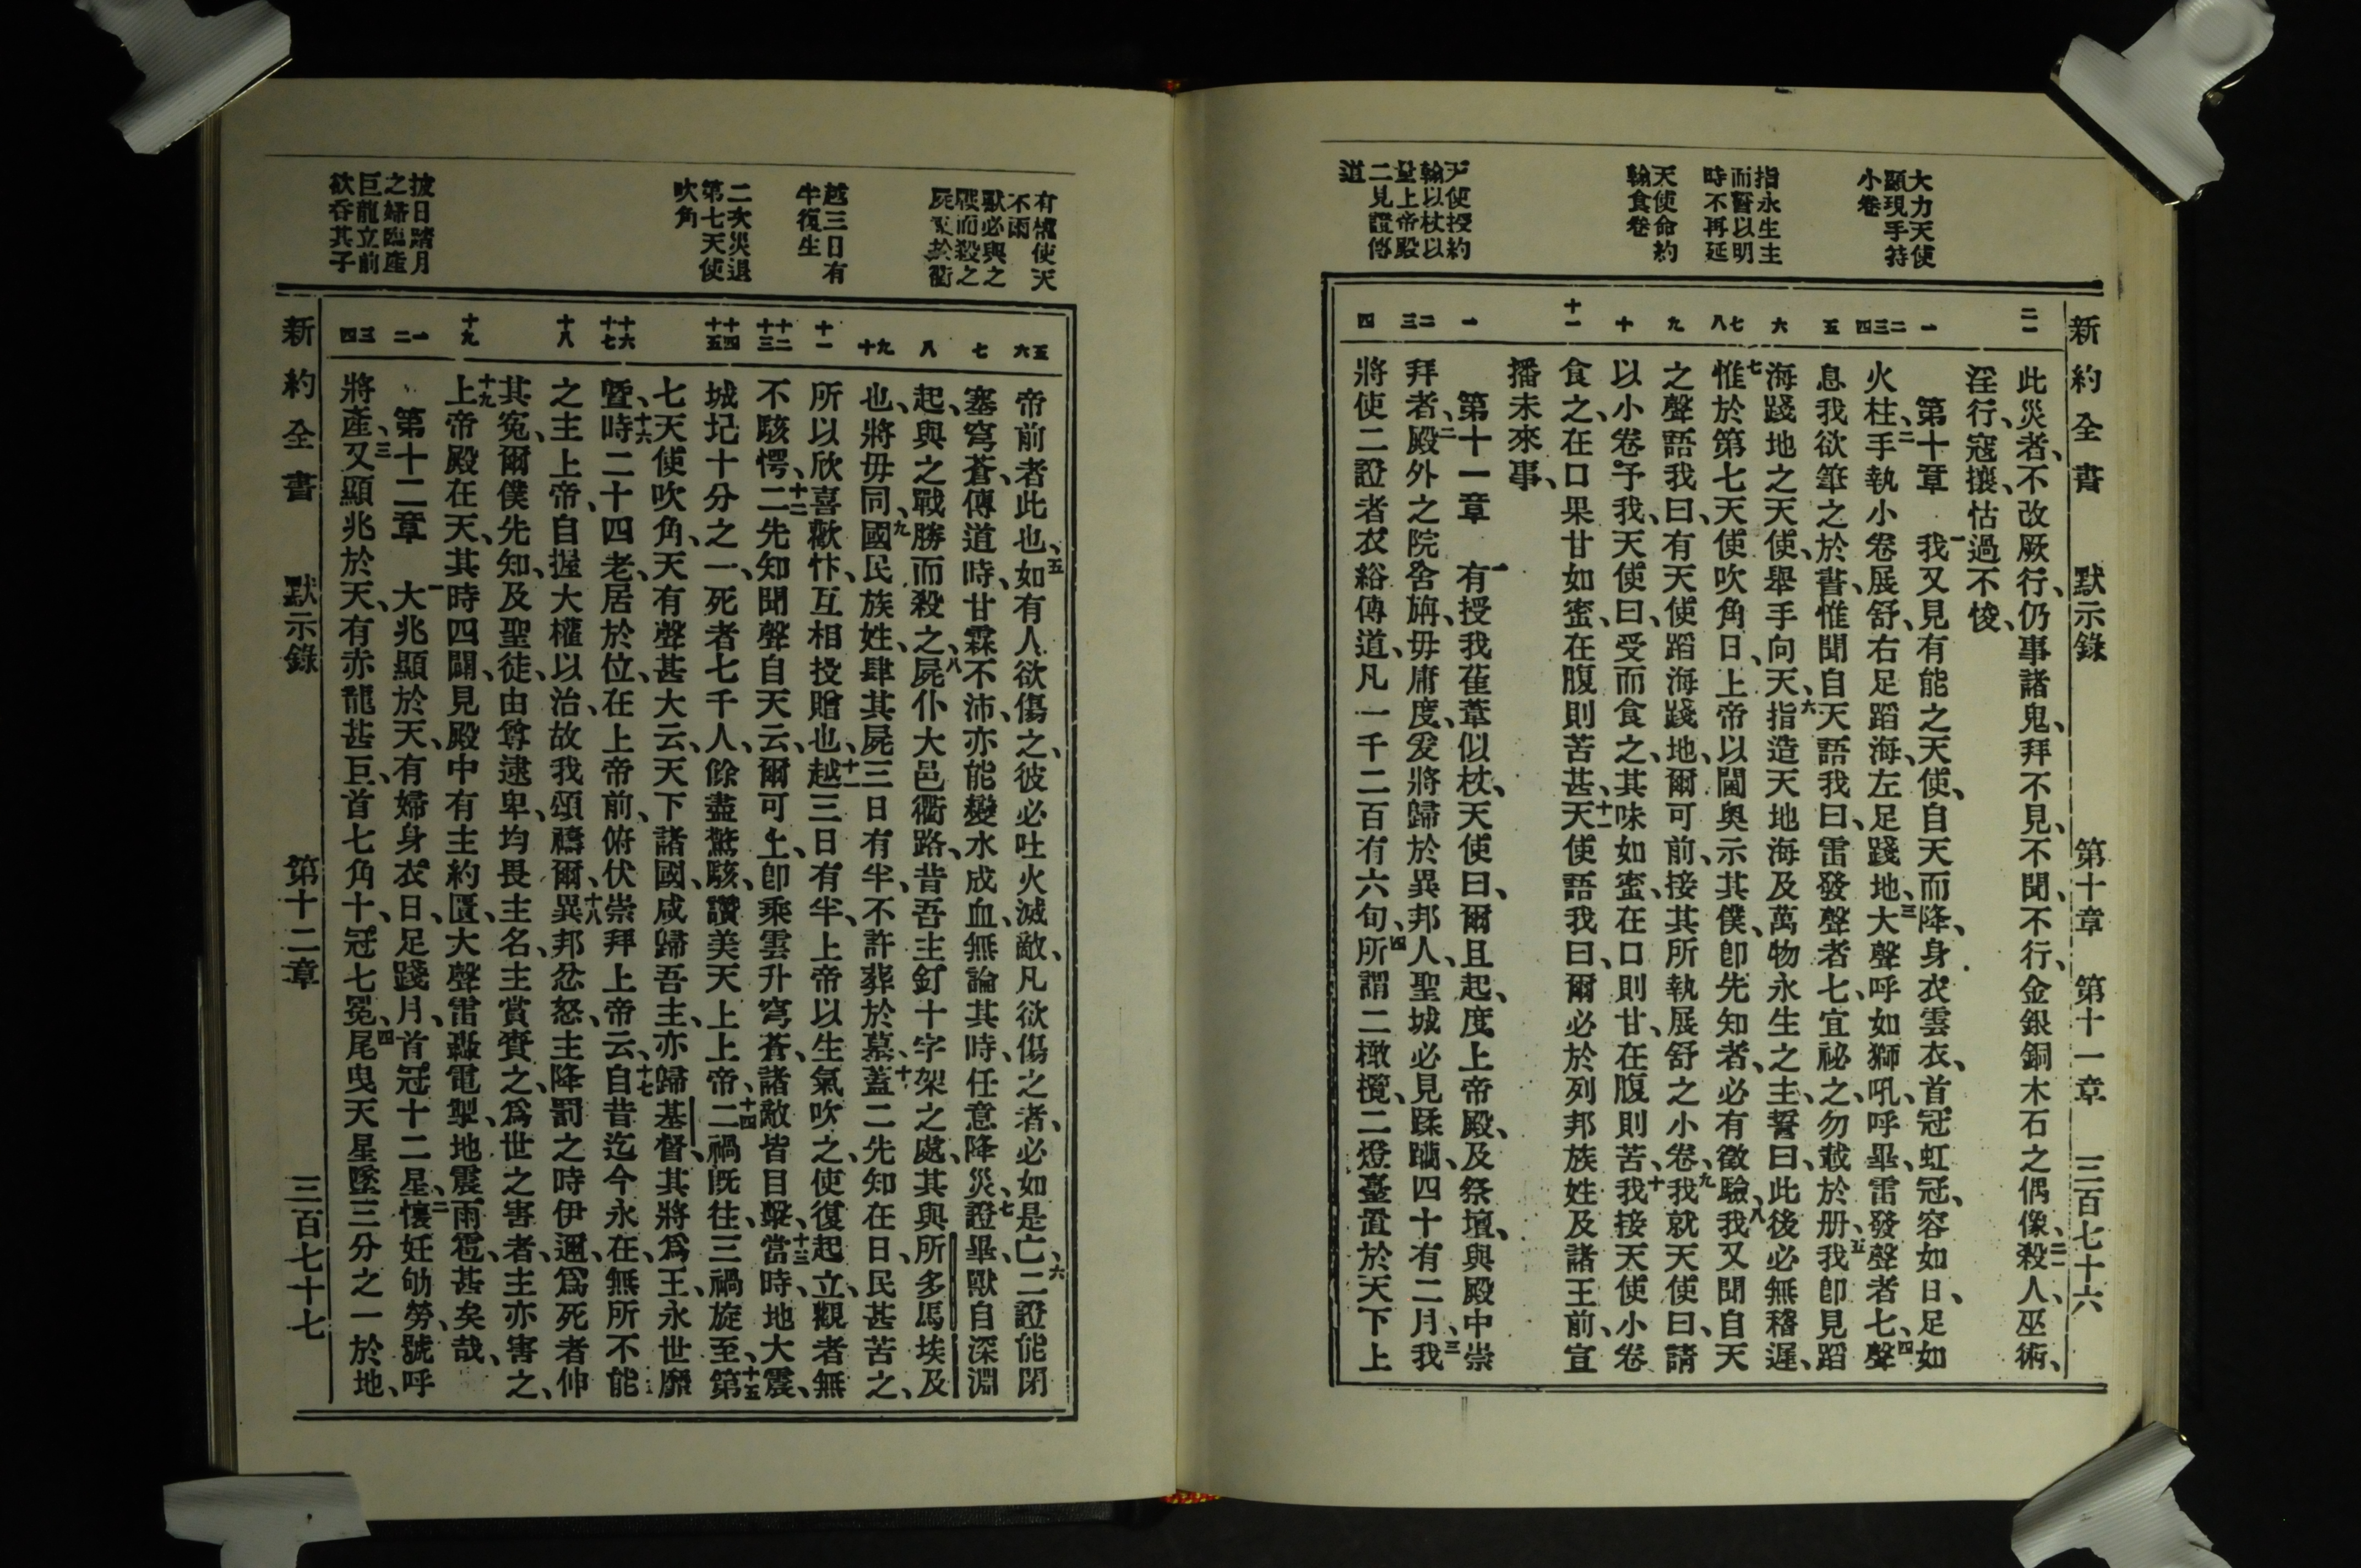 新約全書　默示錄　第十章　第十一章　三百七十六
大力天使
顯現手持
小卷
指永生主
而誓以明
時不再延
天使命約
翰食卷
天使授約
翰以杖以
量上帝殿
二見證傳
道
二一
一
二三四
五
六
七八
九
十
十一
一
二三
四
此災者、不改厥行、仍事諸鬼、拜不見、不聞、不行、金銀銅木石之偶像、二一殺人、巫術、
淫行、寇攘、怙過不悛、
第十章　一我又見有能之天使、自天而降、身衣雲衣、首冠虹冠、容如日、足如
火柱、二手執小卷展舒、右足蹈海、左足踐地、三大聲呼如獅吼、呼畢、雷發聲者七、四聲
息我欲筆之於書、惟聞自天語我曰、雷發聲者七、宜祕之、勿載於册、五我卽見蹈
海踐地之天使、舉手向天、六指造天地海及萬物永生之主、誓曰、此後必無稽遲、
七惟於第七天使吹角日、上帝以閫奧示其僕、卽先知者、必有徵驗、八我又聞自天
之聲語我曰、有天使蹈海踐地、爾可前、接其所執展舒之小卷、九我就天使曰、請
以小卷予我、天使曰、受而食之、其味如蜜、在口則甘、在腹則苦、十我接天使小卷
食之、在口果甘如蜜、在腹則苦甚、十一天使語我曰、爾必於列邦族姓及諸王前、宣
播未來事、
第十一章　一有授我萑葦似杖、天使曰、爾且起、度上帝殿、及祭壇、與殿中崇
拜者、二殿外之院舍旃、毋庸度、爰將歸於異邦人、聖城必見蹂躪、四十有二月、三我
將使二證者衣綌傳道、凡一千二百有六旬、四所謂二橄欖、二燈臺置於天下上
有權使天
不雨
獸必與之
戰而殺之
越三日有
半復生
二次災退
第七天使
吹角
披日踏月
之婦臨產
巨龍立前
欲吞其子
五六
七
八
九十
十一
十二十三
十四十五
十六十七
十八
十九
一二
三四
帝前者此也、五如有人欲傷之、彼必吐火滅敵、凡欲傷之者、必如是亡、六二證能閉
塞穹蒼、傳道時、甘霖不沛、亦能變水成血、無論其時、任意降災、七證畢、獸自深淵
起、與之戰勝而殺之、八屍仆大邑衢路、昔吾主釘十字架之處、其與所多馬埃及
也、將毋同、九國民族姓、肆其屍三日有半、不許葬於墓、十蓋二先知在日、民甚苦之、
所以欣喜歡忭、互相投贈也、十一越三日有半、上帝以生氣吹之、使復起立、觀者無
不駭愕、十二二先知聞聲自天云、爾可上、卽乘雲升穹蒼、諸敵皆目擊、十三當時、地大震、
城圮十分之一、死者七千人、餘盡驚駭、讚美天上上帝、十四二禍既往、三禍旋至、十五第
七天使吹角、天有聲甚大云、天下諸國、咸歸吾主、亦歸基督、其將爲王、永世靡
曁、十六時二十四老、居於位、在上帝前、俯伏崇拜上帝云、十七自昔迄今永在、無所不能
之主上帝、自握大權以治、故我頌禱爾、十八異邦忿怒、主降罰之時伊邇、爲死者伸
其冤、爾僕先知、及聖徒、由尊逮卑、均畏主名、主賞賚之、爲世之害者、主亦害之、
十九上帝殿在天、其時四闢、見殿中有主約匱、大聲雷轟電掣、地震雨雹、甚矣哉、
第十二章　一大兆顯於天、有婦身衣日、足踐月、首冠十二星、二懷妊劬勞、號呼
將產、三又顯兆於天、有赤龍甚巨、首七角十、冠七冕、四尾曳天星墜三分之一於地、
新約全書　默示錄　第十二章　三百七十七